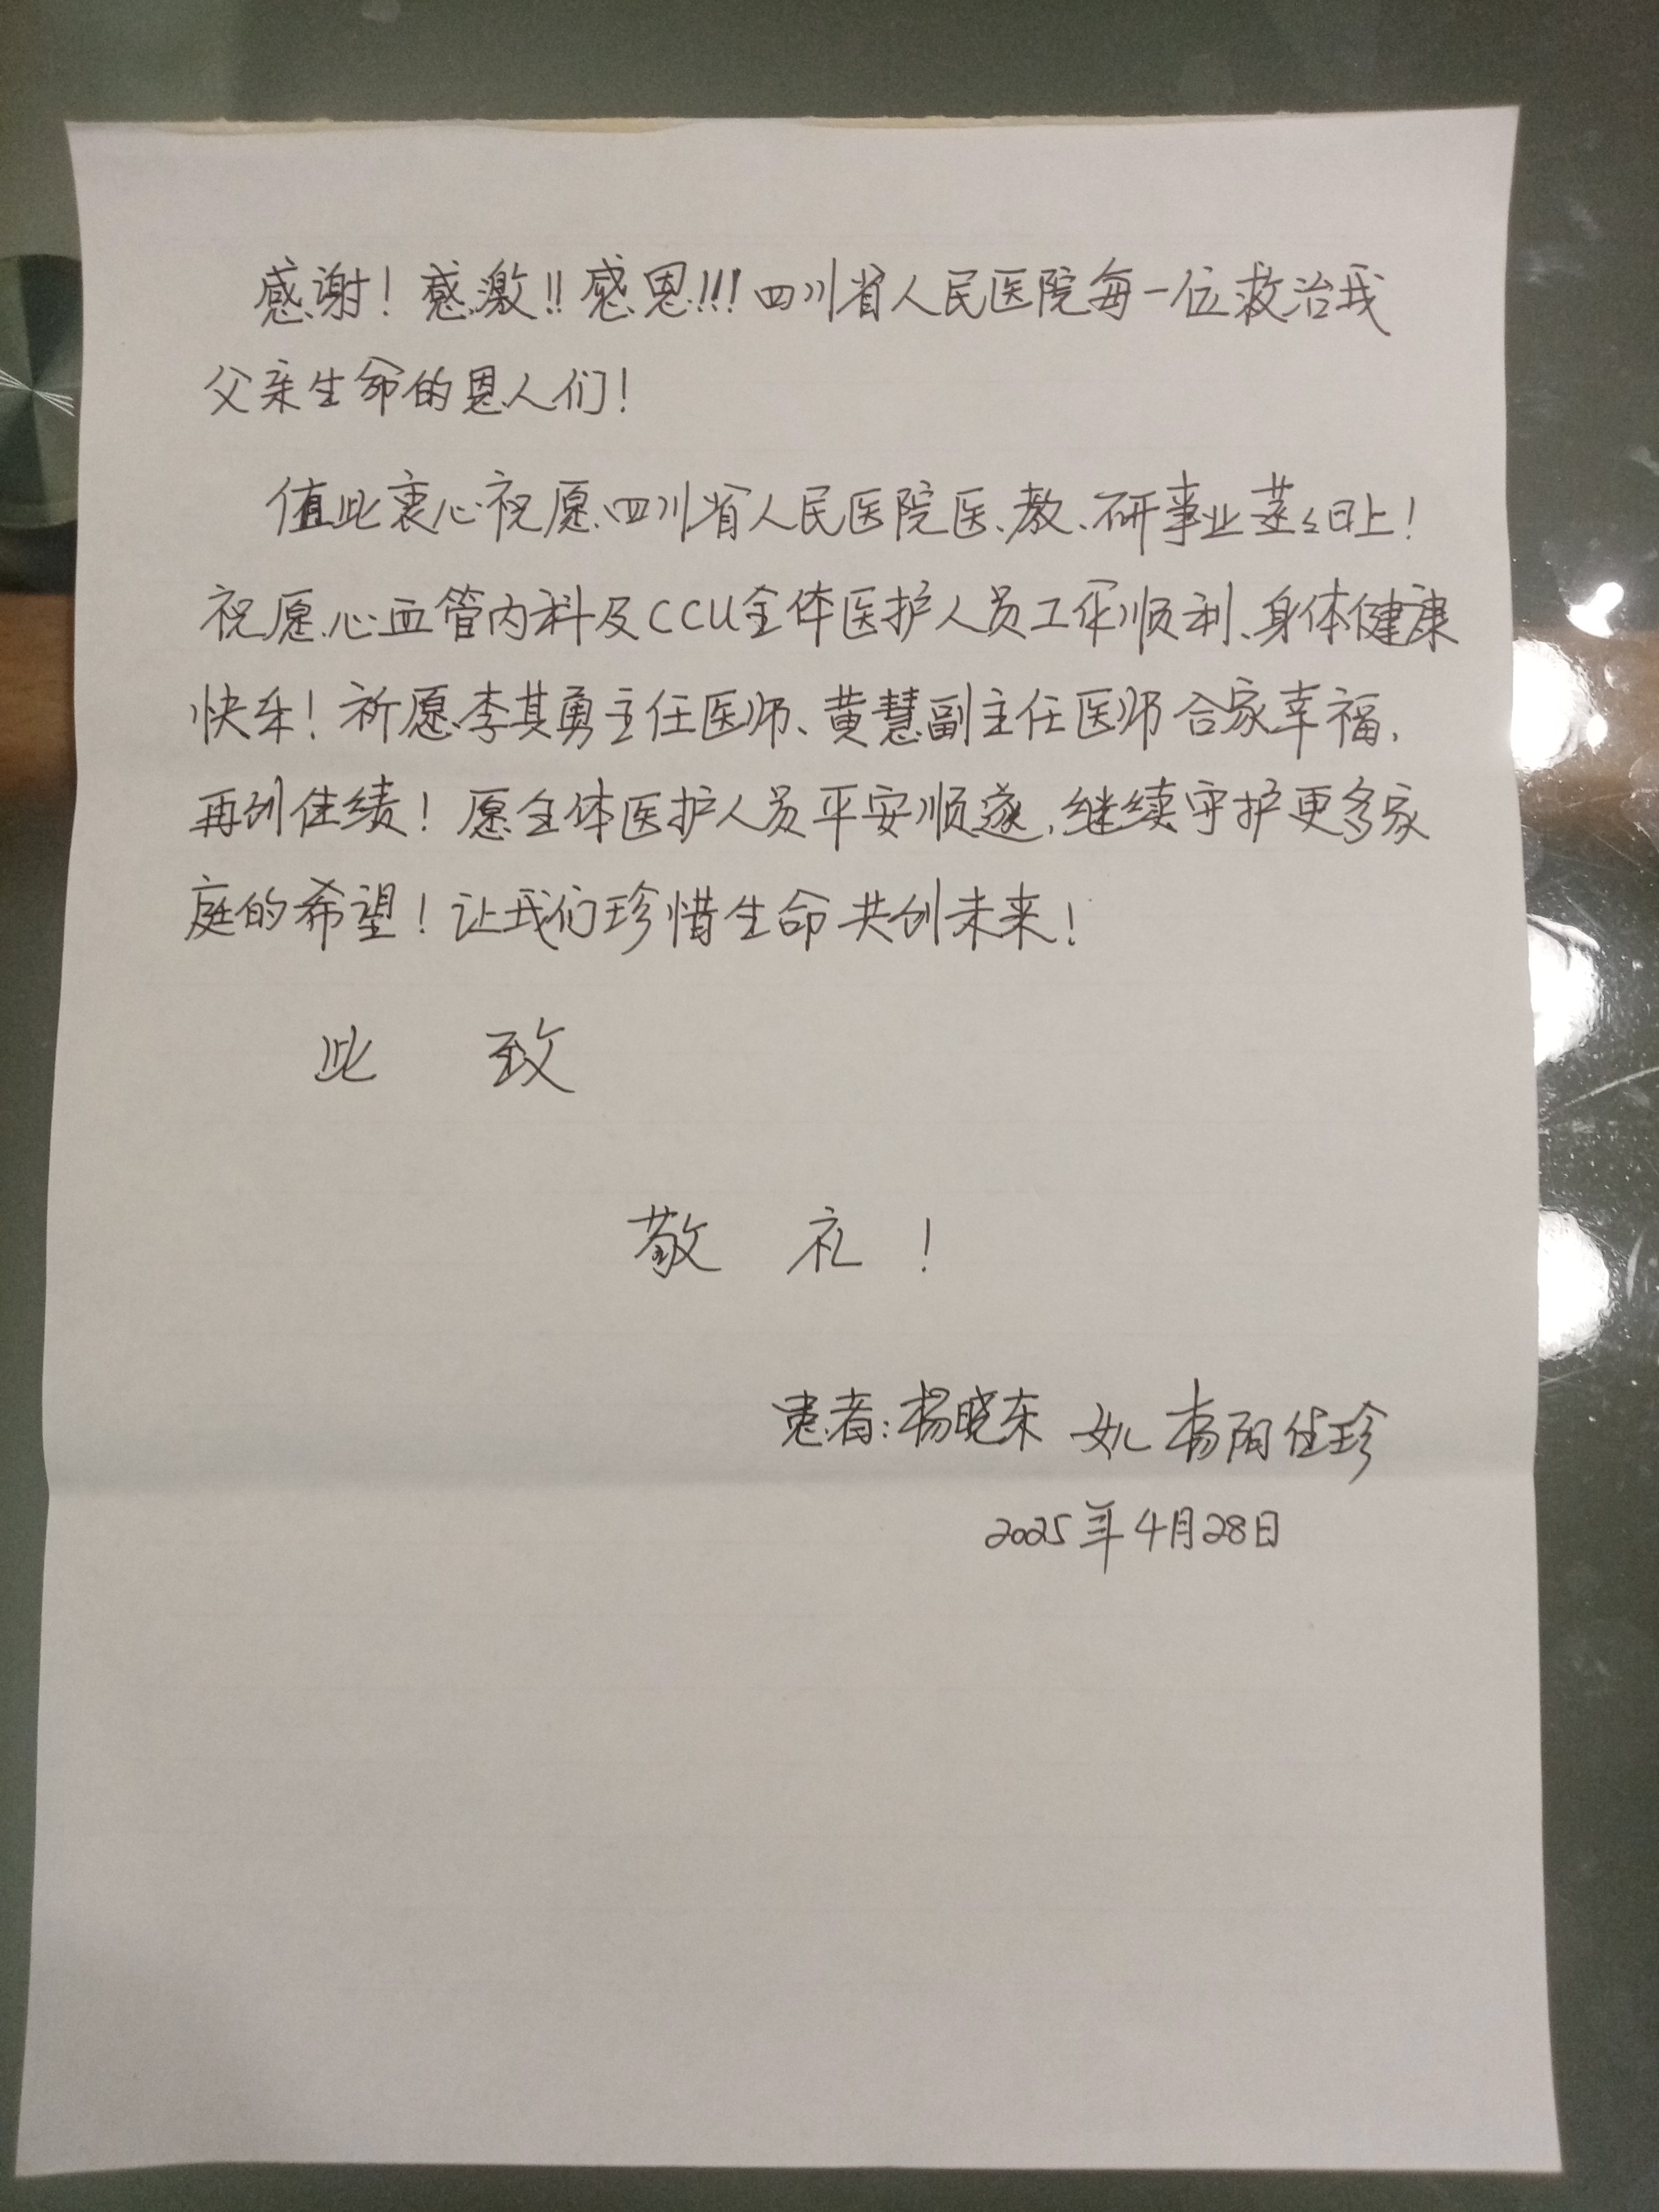 感谢！感激!!感恩!!!四川省人民医院每一位救治我
父亲生命的恩人们！
值此衷心祝愿四川省人民医院医、教、研事业蒸々日上！
祝愿心血管内科及CCU全体医护人员工作顺利、身体健康
快乐！祈愿李其勇主任医师、黄慧副主任医师合家幸福，
再创佳绩！愿全体医护人员平安顺遂，继续守护更多家
庭的希望！让我们珍惜生命共创未来！
此 致
敬 礼！
患者：杨晓东 女儿 杨阳佳珍
2025年4月28日